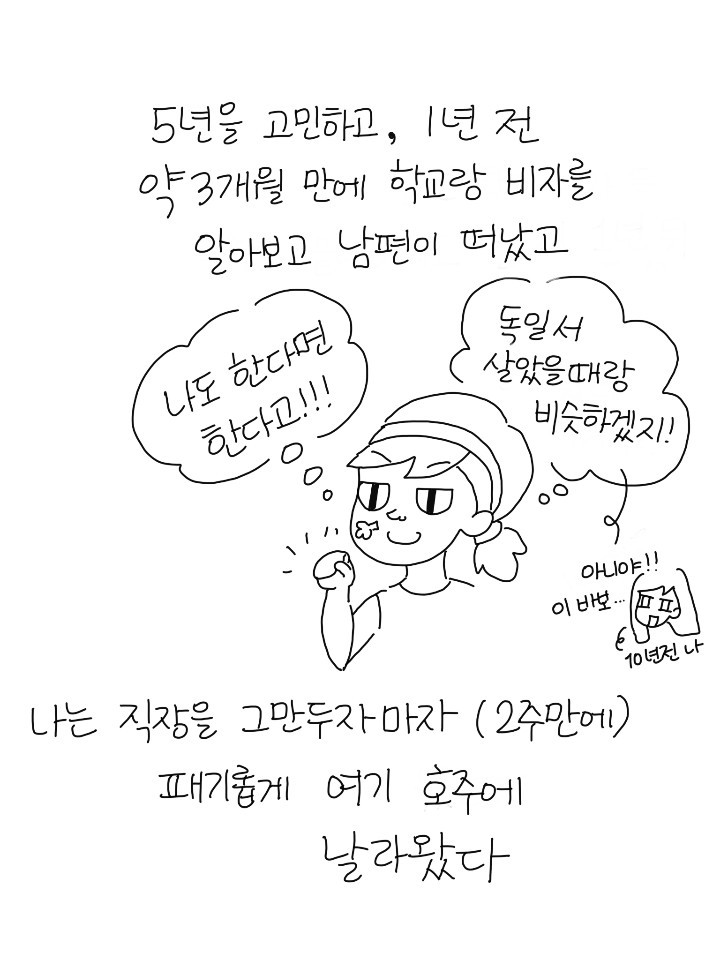 5년을 고민하고, 1년 전
약 3개월 만에 학교랑 비자를
알아보고 남편이 떠났고
나도 한다면
한다고!!!
독일서
살았을때랑
비슷하겠지!
아니야!!
이 바보...
10년전 나
나는 직장을 그만두자마자 (2주만에)
패기롭게 여기 호주에
날라왔다